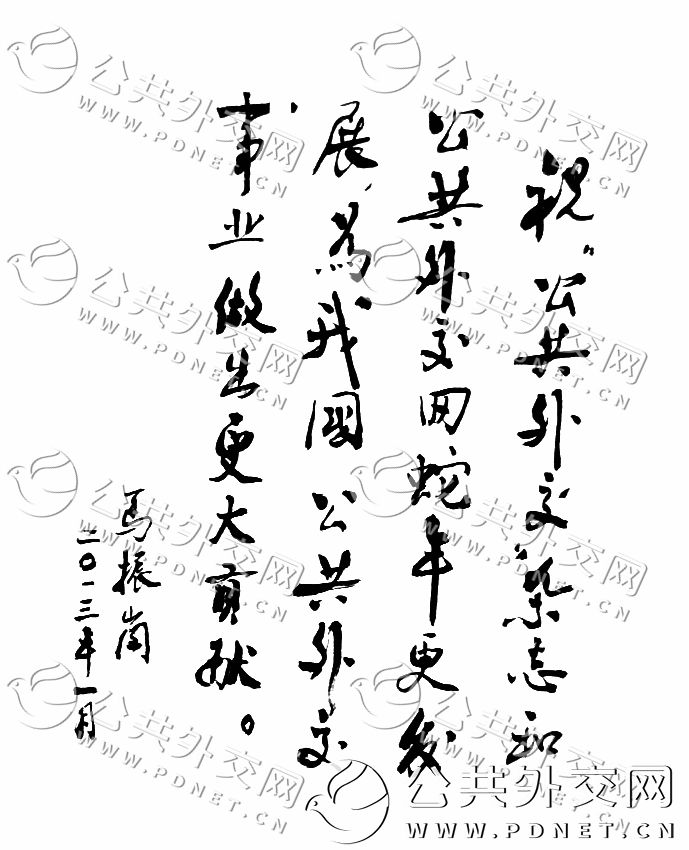 祝“公共外交”杂志和
公共外交网蛇年更发
展，为我國公共外交
事业做出更大贡献。
马振岗
二〇一三年一月
公共外交网
WWW.PDNET.CN